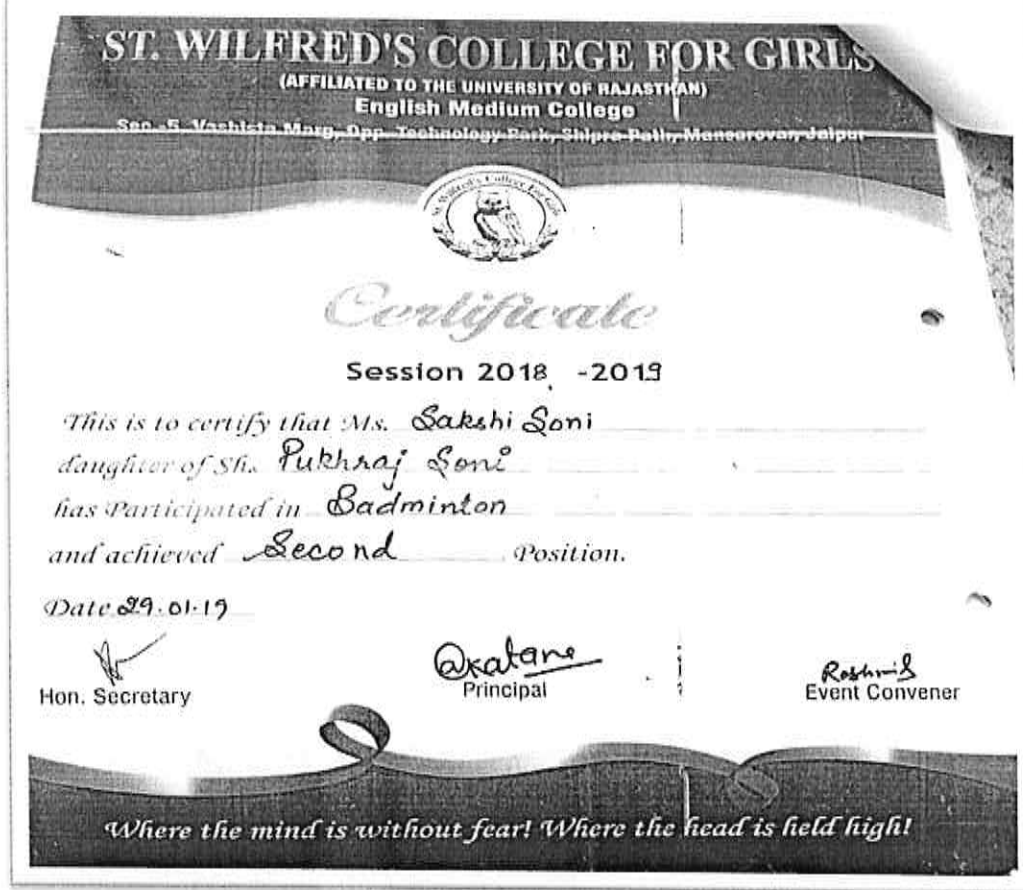 ST. WILFRED'S COLLEGE FOR GIRLS
(AFFILIATED TO THE UNIVERSITY OF RAJASTHAN)
English Medium College
Sec.-5, Vashista Marg, Opp. Technology Park, Shipra Path, Mansarovar, Jaipur
St. Wilfred's College For Girls
Certificate
Session 2018 -2019
This is to certify that Ms. Sakshi Soni
daughter of Sh. Pukhraj Soni
has Participated in Badminton
and achieved Second Position.
Date 29.01.19
Hon. Secretary
Principal
Rashmi S
Event Convener
Where the mind is without fear! Where the head is held high!